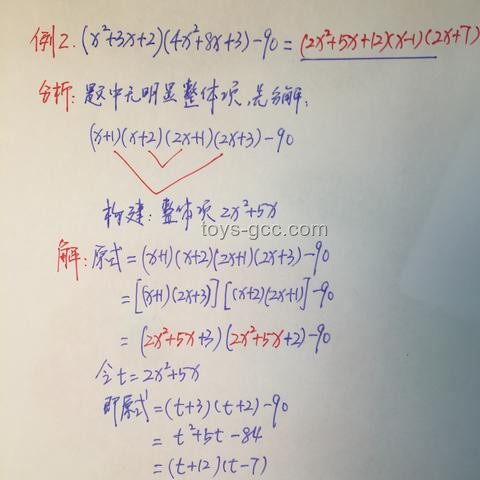 例2. (x²+3x+2)(4x²+8x+3)-90=(2x²+5x+12)(x-1)(2x+7)
分析:题中无明显整体项,先分解:
(x+1)(x+2)(2x+1)(2x+3)-90
构建:整体项 2x²+5x
toys-gcc.com
解:原式=(x+1)(x+2)(2x+1)(2x+3)-90
=[(x+1)(2x+3)][(x+2)(2x+1)]-90
=(2x²+5x+3)(2x²+5x+2)-90
令t=2x²+5x
即原式=(t+3)(t+2)-90
=t²+5t-84
=(t+12)(t-7)